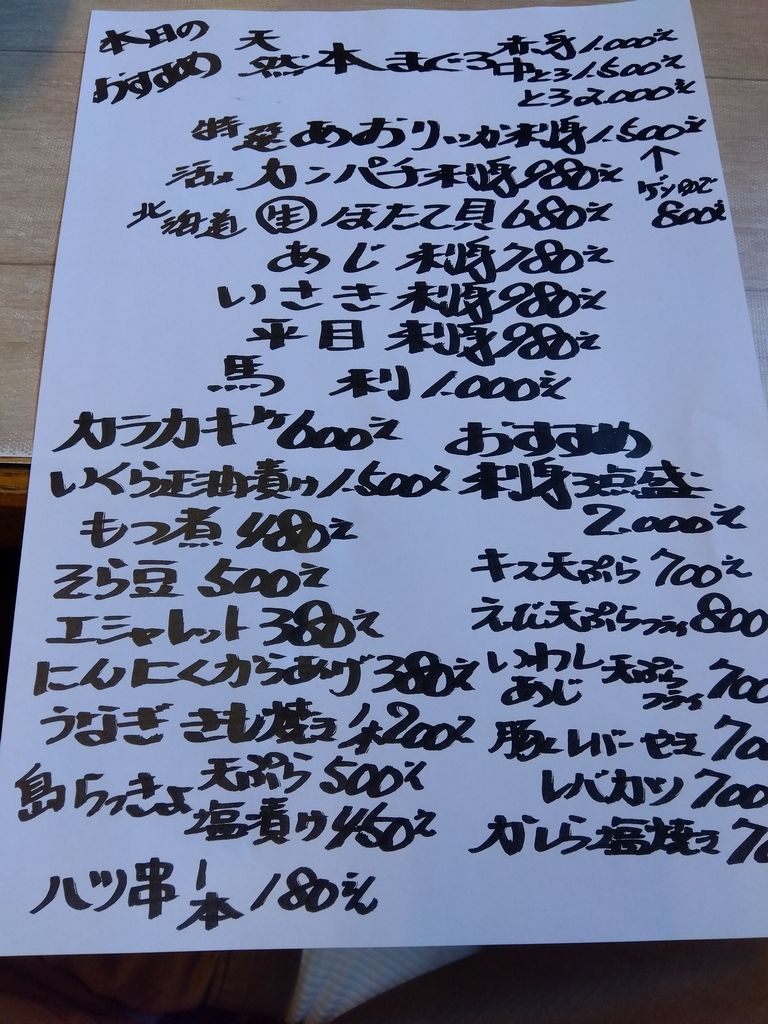 本日の
おすすめ
天然本まぐろ 赤身 1.000え
中とろ 1.500え
とろ 2.000え
特選 あおりいか刺身 1.500え
↑
ゲソゆで
800え
活〆 カンパチ刺身 980え
北海道 生 ほたて貝 680え
あじ 刺身 780え
いさき 刺身 980え
平目 刺身 980え
馬刺 1.000え
カラカキ 600え
いくら正油漬け 1.500え
もつ煮 480え
そら豆 500え
エシャレット 380え
にんにくからあげ 380え
うなぎ きも焼き 1本 200え
島らっきょ 天ぷら 500え
塩漬け 450え
ハツ串 1本 180えん
おすすめ
刺身3点盛
2.000え
キス天ぷら 700え
えび天ぷら フライ 800
いわし あじ 天ぷら フライ 700
豚レバーやき 70
レバカツ 700
かしら塩焼き 70